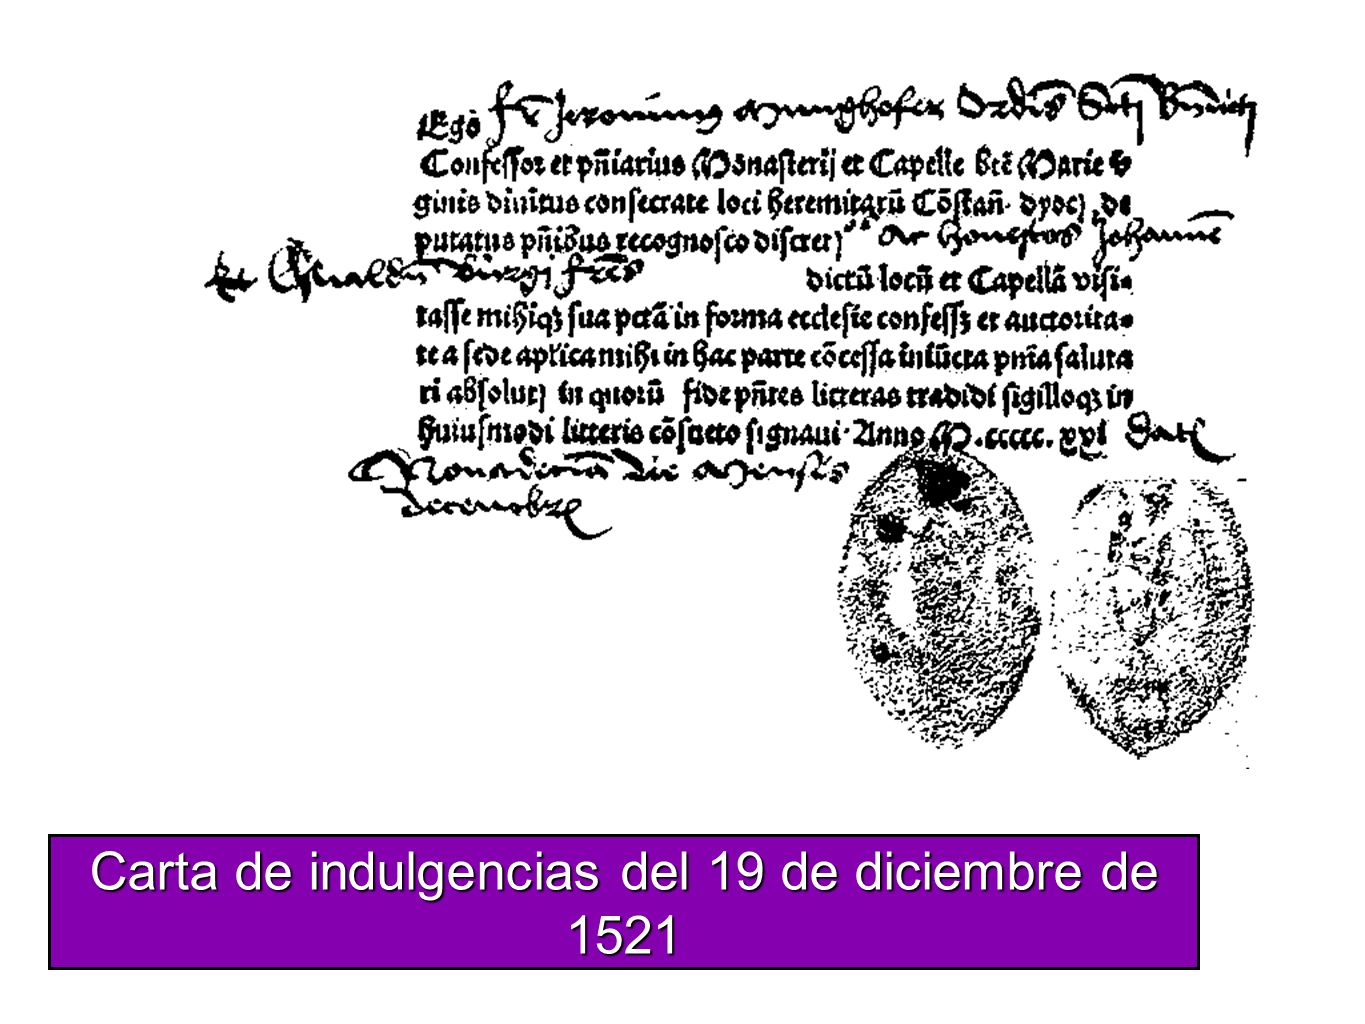 Egō fr̄ Jeronimus Munghofer Ordīs Sctj Bn̄dicti
Confessor et pn̄iarius Monasterij et Capelle btē Marie v̓
ginis diuitus consecrate loci heremitarū Cōstan̄. dyoc), de
putatus pn̄ibus recognosco discret) ac honestos Johanne
et dictū locū et Capellā visi-
tasse mihiqȝ sua pctā in forma ecclesie confessȝ et auctorita-
te a sede aplica mihi in hac parte cōcessa iniūcta pn̄ia saluta
ri absolut) in quorū fide pn̄tes litteras tradidi sigilloqȝ in
huiusmodi litteris cōsueto signaui. Anno M.ccccc.xxi dat
Nonadecima die Mensis
decembr
Carta de indulgencias del 19 de diciembre de
1521